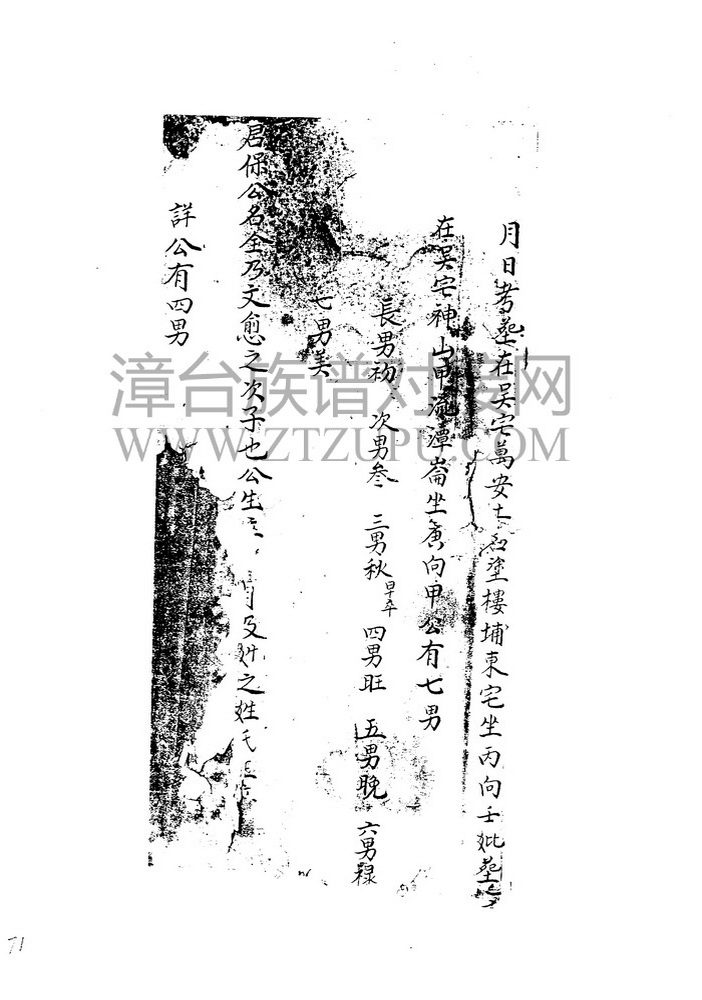 月日考墓在吴宅萬安土名塗樓埔東宅坐丙向壬妣墓
在吴宅神山甲流潭崙坐庚向甲公有七男
長男初 次男叁 三男秋早卒 四男旺 五男晚 六男禄
七男美
君保公名全乃文愈之次子也公生 月及妣之姓氏
詳公有四男
漳台族谱对接网
WWW.ZTZUPU.COM
71